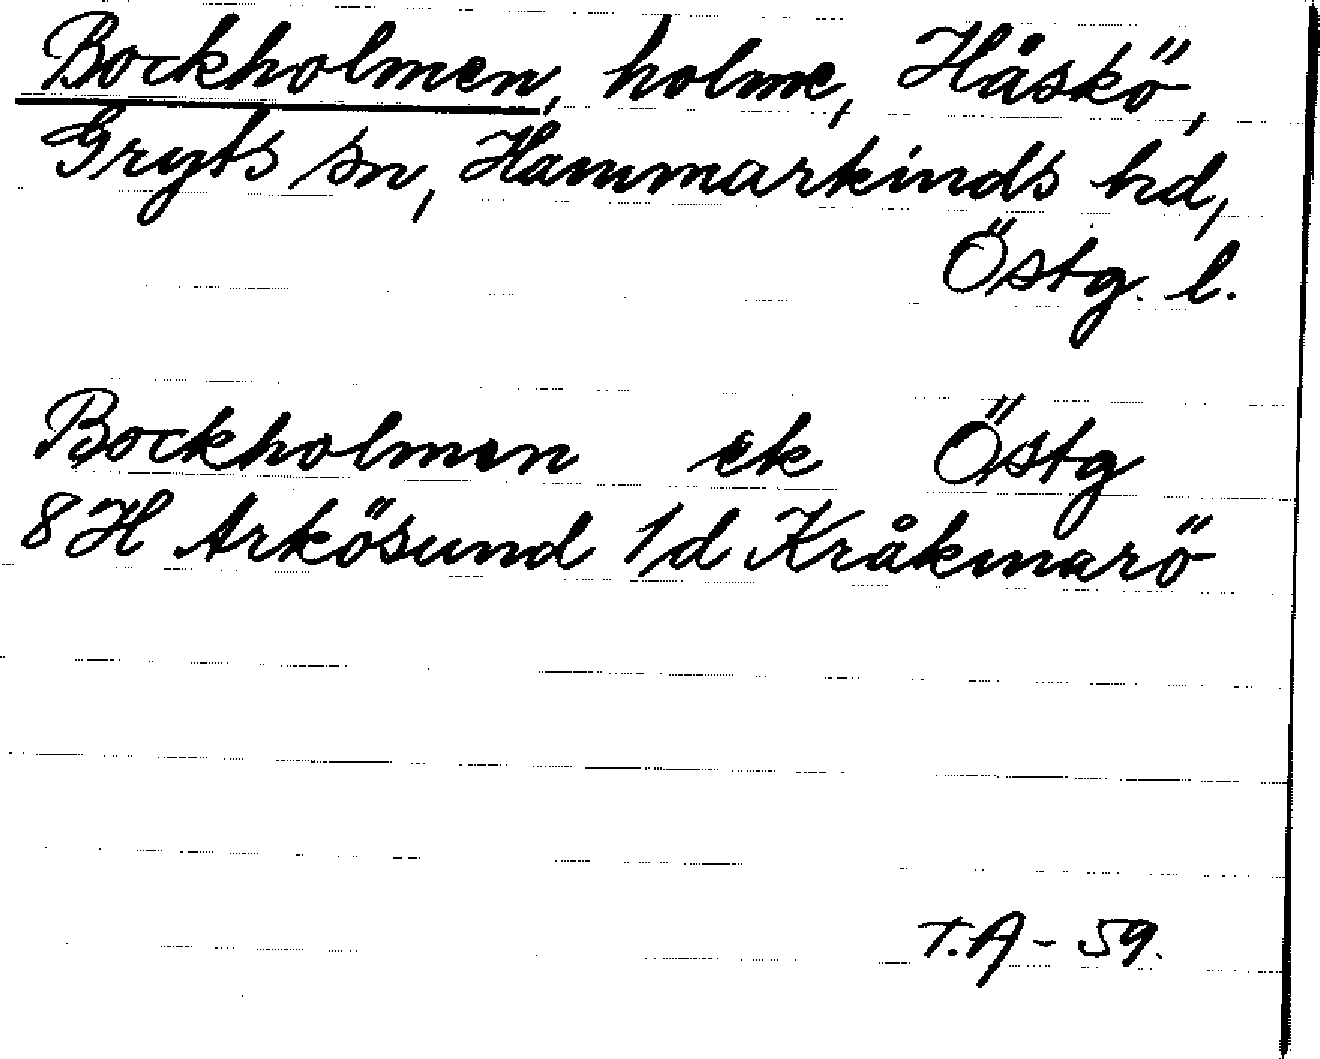 Bockholmen, holme, Håskö,
Gryts sn, Hammarkinds hd,
Östg. l.
Bockholmen ek Östg
8H Arkösund 1d Kråkmarö
T.A - 59.